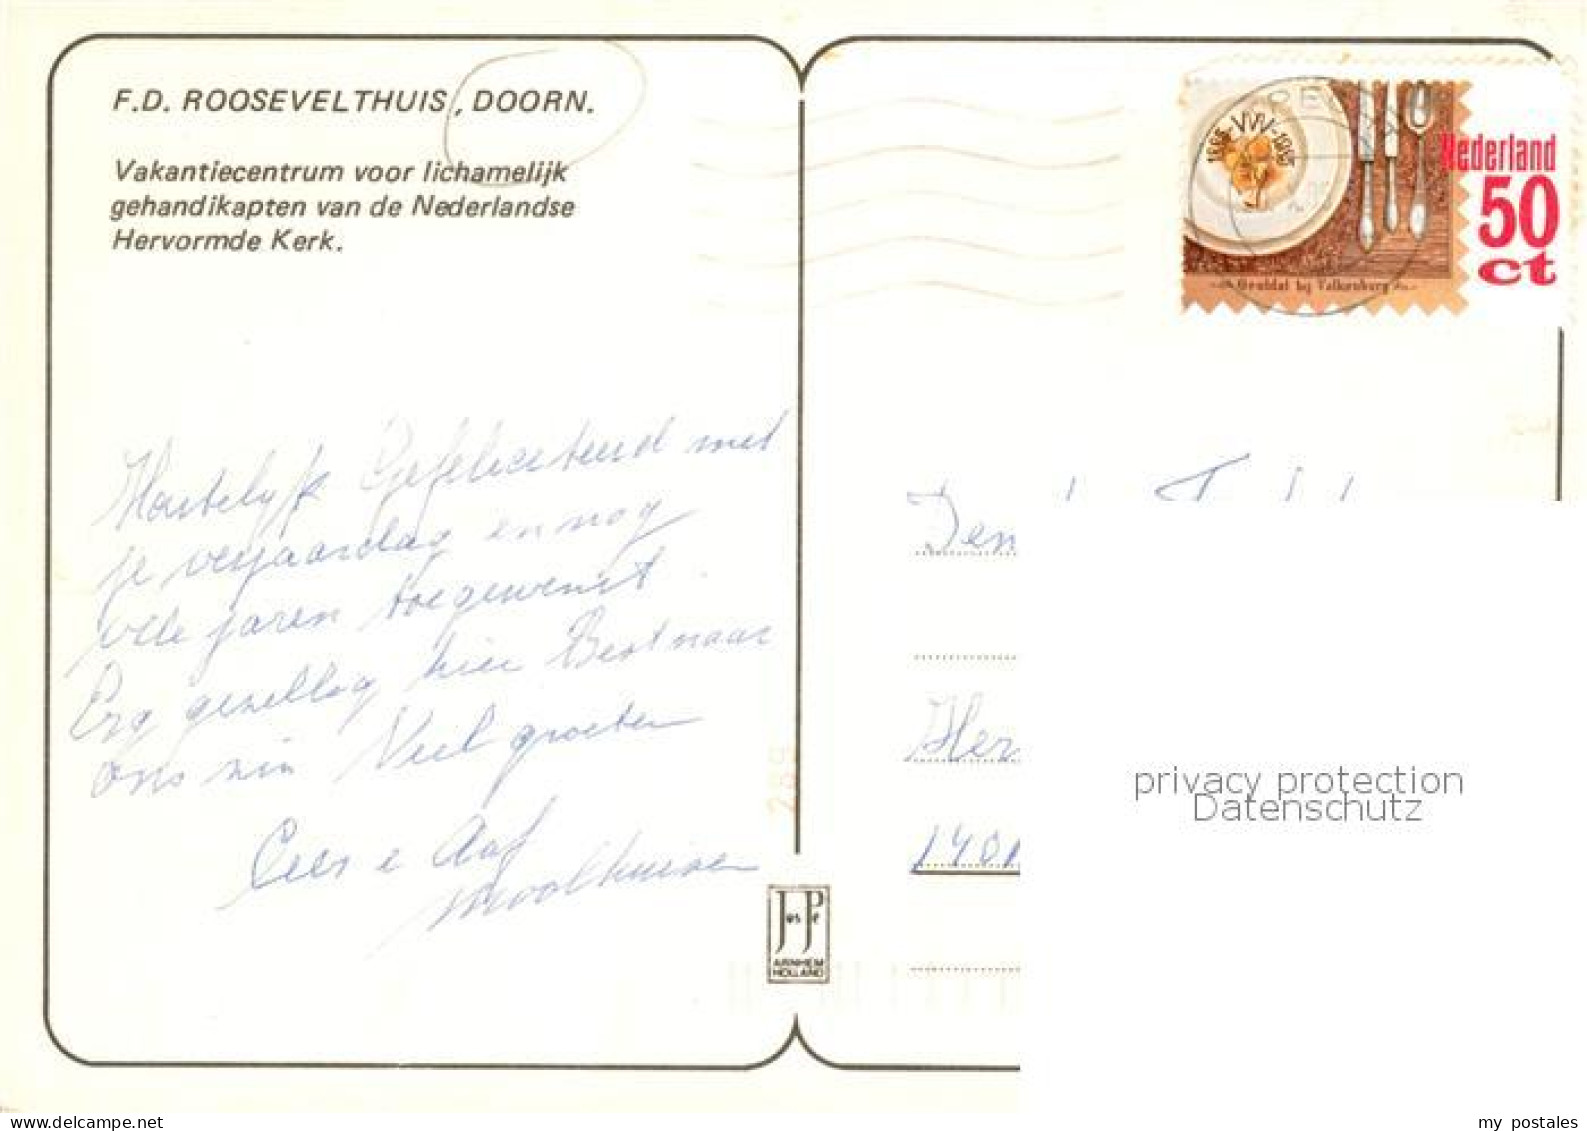 F.D. ROOSEVELTHUIS, DOORN.
Vakantiecentrum voor lichamelijk
gehandikapten van de Nederlandse
Hervormde Kerk.
1885-VVV-1985
Nederland
50
ct
Geuldal bij Valkenburg
Hartelijk Gefeliciteerd met
je verjaardag en nog
vele jaren toegewenst
Erg gezellig hier Best naar
ons zin Veel groeten
Cees e Aaf
Den
Her
1401
269
Jos Pé
ARNHEM
HOLLAND
privacy protection
Datenschutz
my postales